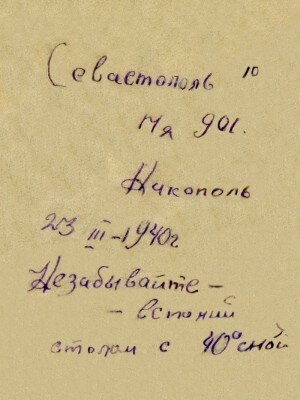 Севастополь 10
Мя 901.
Никополь
23 III-1940г
Незабывайте -
- встречи
столом с 40°сной